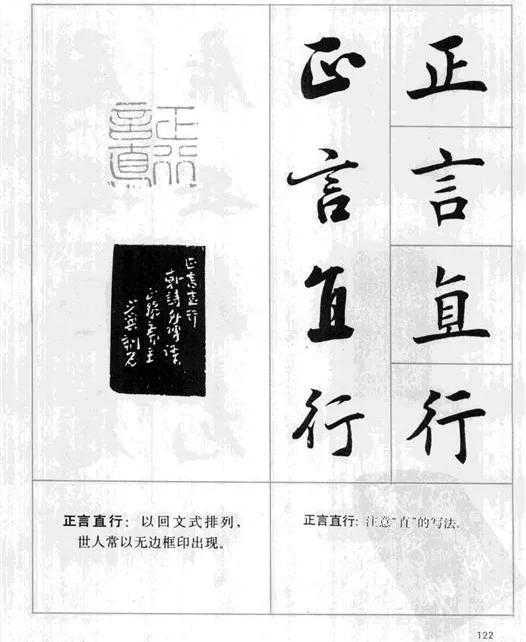 正言直行
正言直行
正言直行
正言直行
正言直行：以回文式排列、
世人常以无边框印出现。
正言直行: 注意“直”的写法.
122